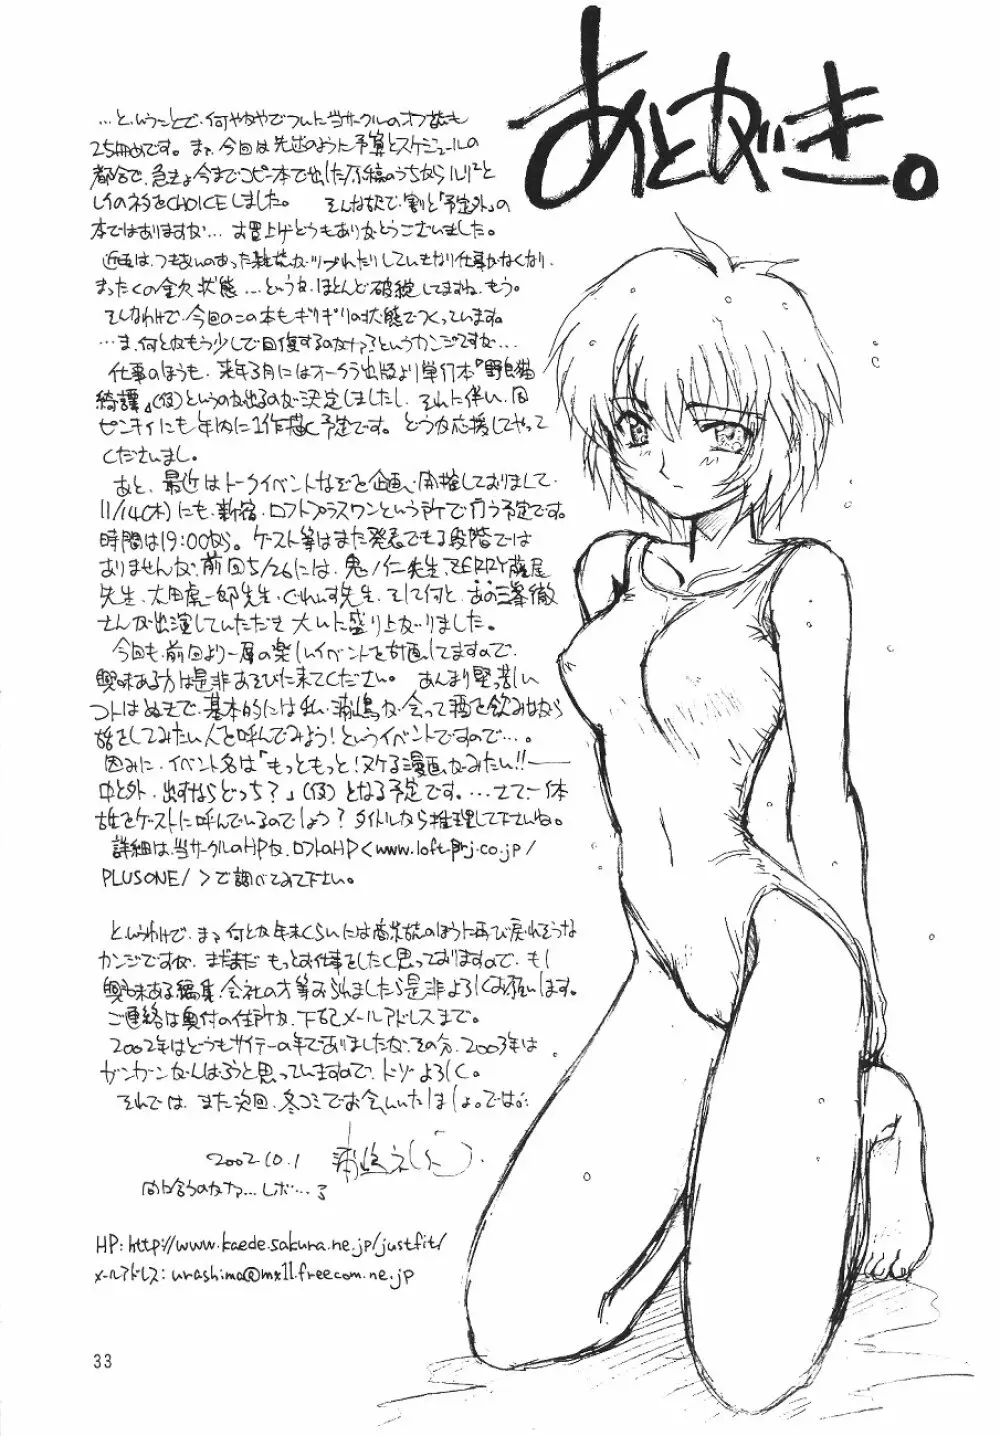 あとがき。
…ということで、何やかやでついに当サークルのオフ誌も
25冊めです。まァ、今回は先述のように予算とスケジュールの
都合で、急きょ今までコピー本で出した原稿のうちから ルリと
レイのネタをCHOICEしました。 そんな訳で割と「予定外」の
本ではありますが… お買上げどうもありがとうございました。
近況は、つきあいのあった雑誌がツブれたりしていきなり仕事がなくなり、
まったくの金欠状態…というか、ほとんど破綻してますね、もう。
そんなわけで、今回のこの本もギリギリの状態でつくっています。
…ま、何とかもう少しで回復するのかナ?というカンジですが…
仕事のほうも、来年3月にはオークラ出版より単行本『野良猫
綺譚』(仮)というのが出るのが決定しましたし、それに伴い、同
センキイにも年内に1作描く予定です。どうか応援してやって
くださいまし。
あと、最近はトークイベントなぞを企画、開催しておりまして、
11/14(木)にも、新宿・ロフトプラスワンという所で行う予定です。
時間は19:00から。ゲスト等はまだ発表できる段階では
ありませんが、前回5/26には、鬼ノ仁先生、ZERRY藤尾
先生、太田虎一郎先生、ぐれいす先生、そして何と、あの三峯徹
さんが出演していただき 大いに盛り上がりました。
今回も、前回より一層の楽しいイベントを計画してますので、
興味ある方は是非あそびに来てください。 あんまり堅苦しい
コトはぬきで、基本的には私・浦嶋が、会って酒を飲みながら
話をしてみたい人を呼んでみよう!というイベントですので…。
因みに、イベント名は「もっともっと!ヌケる漫画がみたい!!―
中と外、出すならどっち?」(仮)となる予定です。…さて、一体
誰をゲストに呼んでいるのでしょう? タイトルから推理して下さいね。
詳細は、当サークルのHPか、ロフトのHP<www.loft-prj.co.jp/
PLUSONE/>で調べてみて下さい。
というわけで、まァ何とか年末くらいには商業誌のほうに再び戻れそうな
カンジですが、まだまだ もっとお仕事をしたく思っておりますので、もし
興味ある編集・会社の方等おられましたら是非よろしくお願いします。
ご連絡は奥付の住所か、下記メールアドレスまで。
2002年はどうもサイテーの年でありましたが、その分、2003年は
ガンガンがんばろうと思っていますので、ドゾよろしく。
それでは、また次回、冬コミでお会いいたしましょ。では。
2002.10.1
HP: http://www.kaede.sakura.ne.jp/justfit/
メールアドレス: urashima@mx11.freecom.ne.jp
33